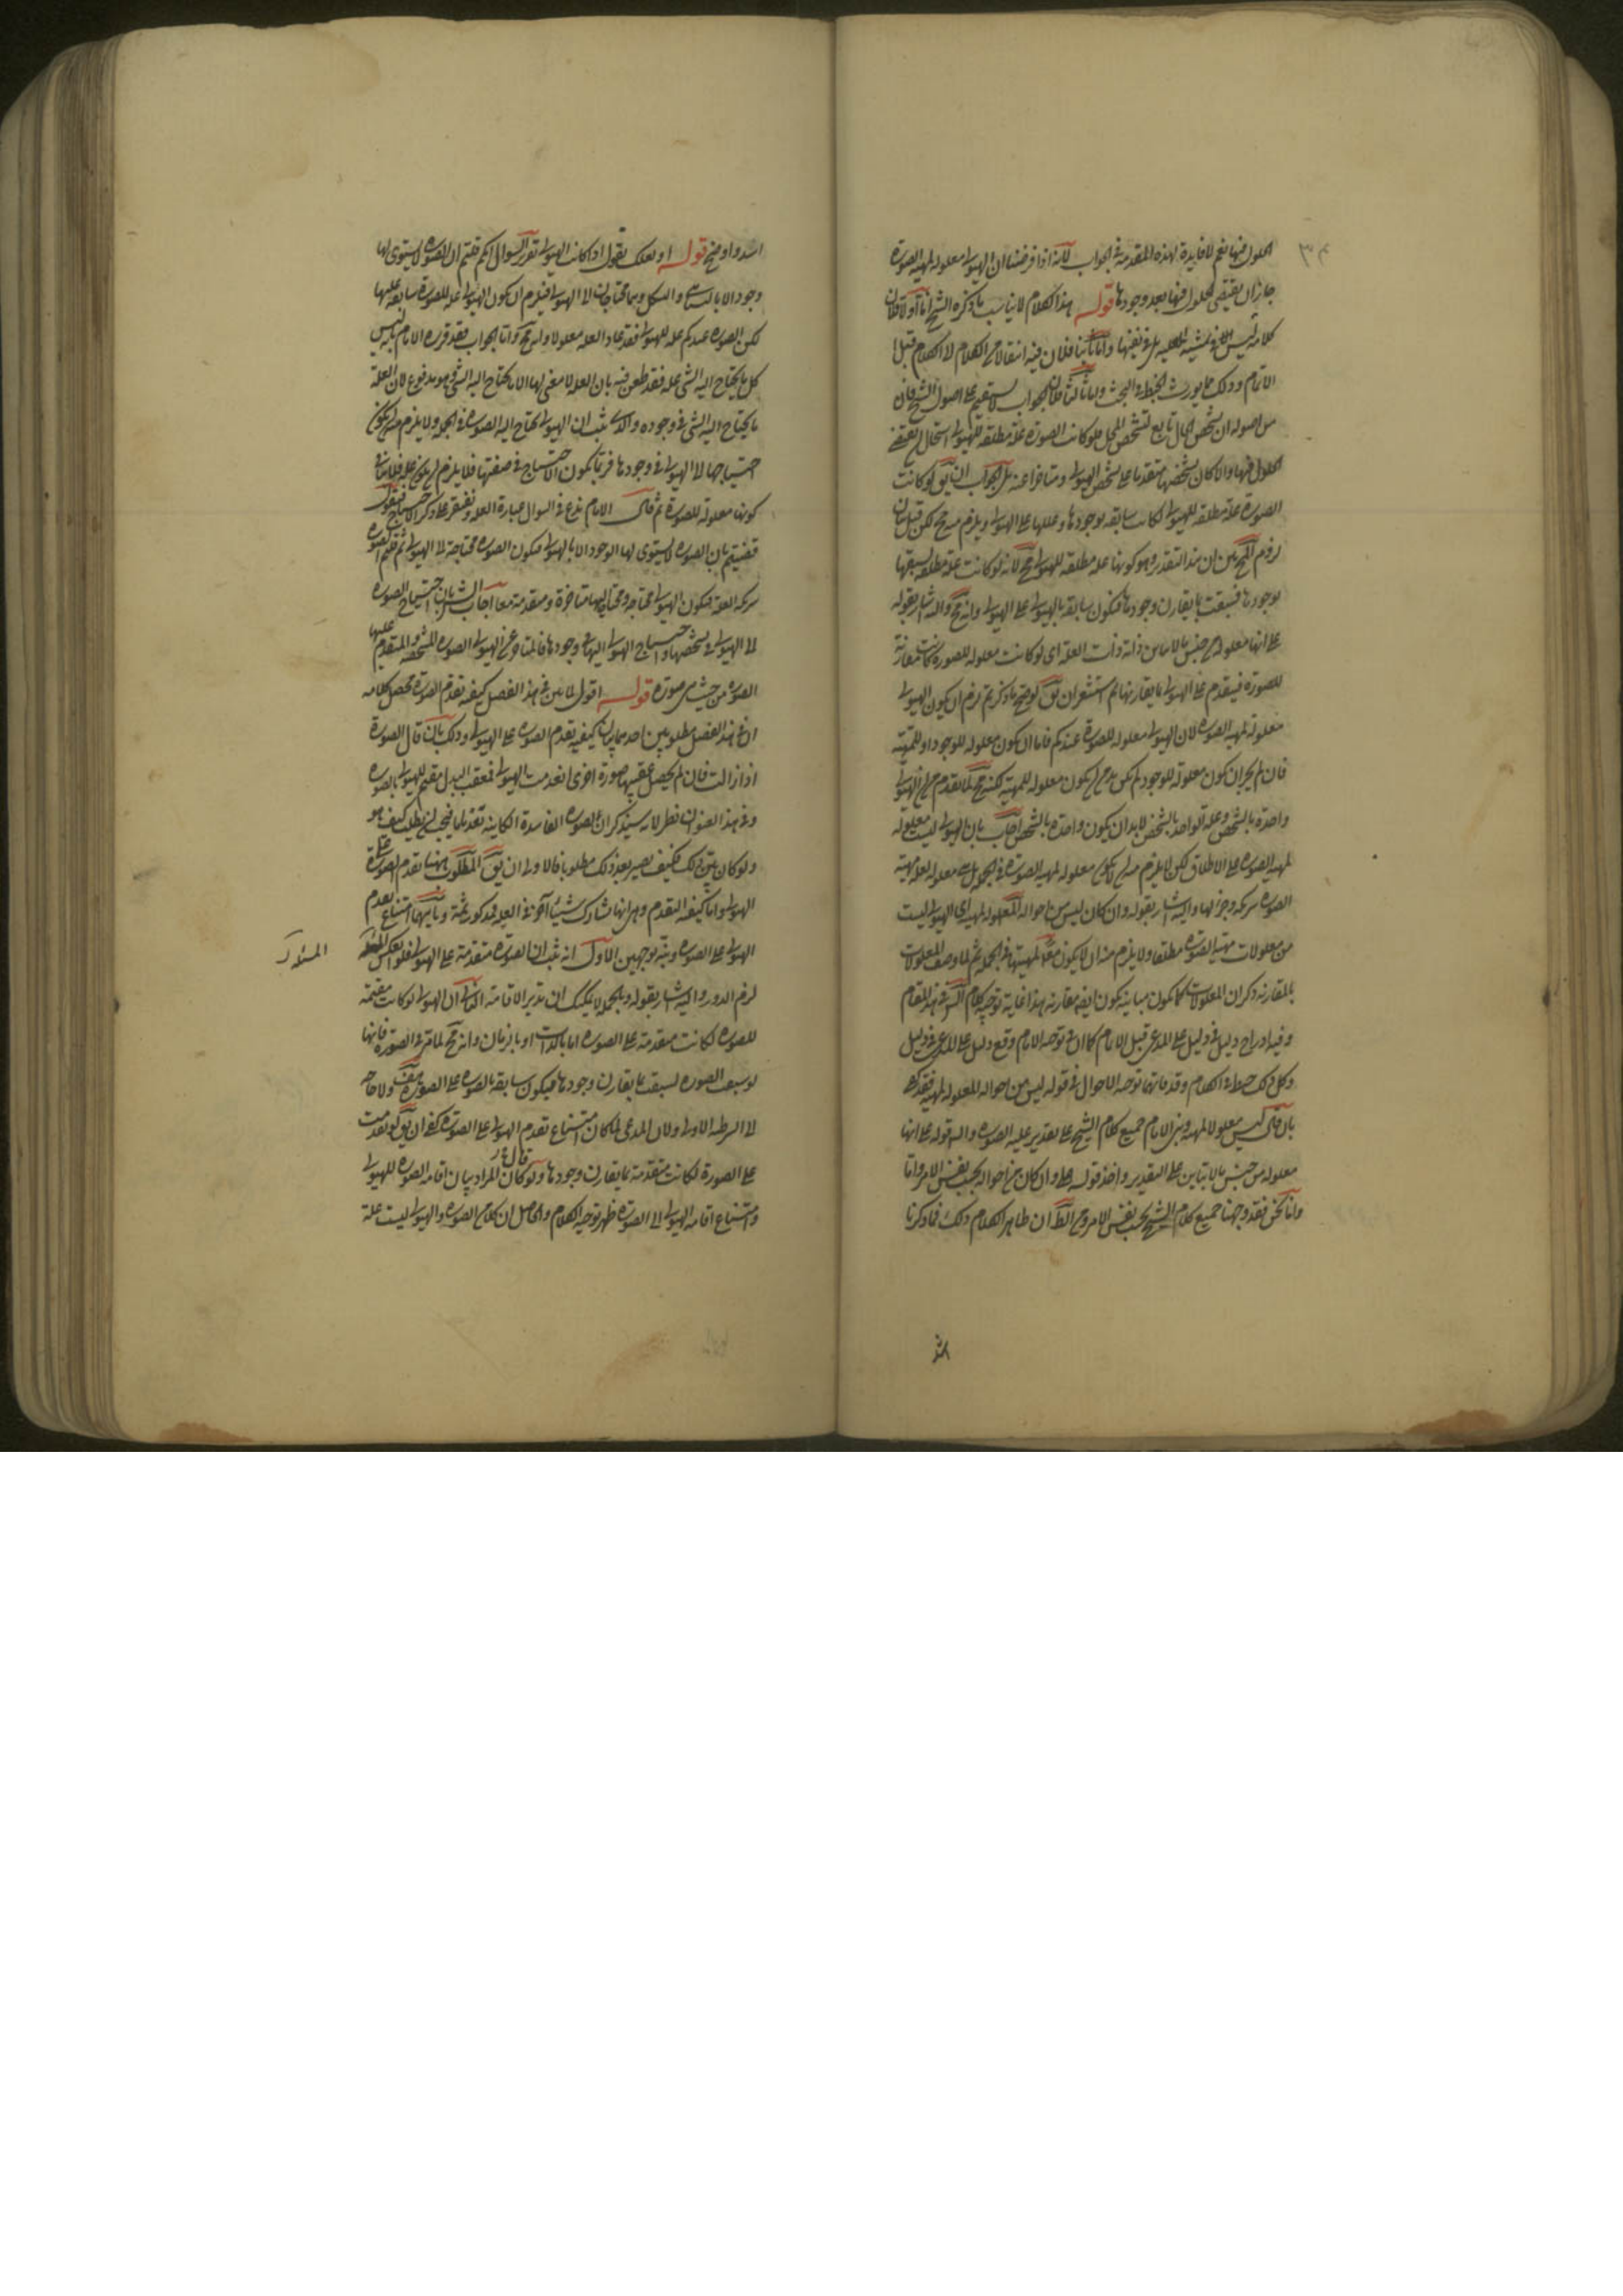 الحلول فيها نعم لا فايدة لهذه المقدمة في الجواب لانه اذا فرضنا ان الهيولى معلولة لمهية الصورة
جاز ان يقتضى الحلول فيها بعد وجودها قوله هذا الكلام لا يناسب ما ذكره الشيخ اما اولا فلان
كلامه ليس الا في العلية بل في نفيها واما ثانيا فلان فيه انتقالا من الكلام الى الكلام قبل
الاتمام وذلك مما يورث الخبط في البحث واما ثالثا فلان الجواب لا يستقيم على اصول الشيخ فان
من اصوله ان تشخص الحال تابع لتشخص المحل فلو كانت الصورة علة مطلقة للهيولى استحال ان يقتضى
الحلول فيها والا لكان تشخصها متقدما على تشخص الهيولى ومتاخرا عنه بل الجواب ان يق لو كانت
الصورة علة مطلقة للهيولى لكانت سابقة بوجودها وعللها على الهيولى ويلزم منه مح لكن قبل بيان
لزوم المح بين ان هذا التقدير وهو كونها علة مطلقة للهيولى مح لانه لو كانت علة مطلقة لسبقها
بوجودها فسبقت ما يقارن وجودها فيكون سابقة بالهيولى على الهيولى وانه مح واليه اشار بقوله
على انها معلولة من جنس ما لا يباين ذاته ذات العلة اى لو كانت معلولة للصورة كانت مقارنة
للصورة فيتقدم على الهيولى ما يقارنها ثم استشعر ان يق لو صح ما ذكرتم لزم ان لا يكون الهيولى
معلولة لمهية الصورة لان الهيولى معلولة للصورة عندكم فاما ان يكون معلولة للوجود او للمهية
فان لم يجز ان يكون معلولة للوجود لم يكن بد من ان يكون معلولة للمهية لكنه مح لما تقدم من ان الهيولى
واحدة بالشخص وعلة الواحد بالشخص لا بد ان يكون واحدة بالشخص اجاب بان الهيولى ليست معلولة
لمهية الصورة على الاطلاق لكن لا يلزم منه ان لا يكون معلولة لمهية الصورة في الجملة بل هي معلولة لعلة مهية
الصورة شريكة وجزء لها واليه اشار بقوله وان كان ليس من احواله المعلولة لمهيته اى الهيولى ليست
من معلولات مهية الصورة مطلقا ولا يلزم منه ان لا يكون معلولة لمهيتها في الجملة ثم لما وصف المعلولات
بالمقارنة ذكر ان المعلولات كما يكون مباينة يكون ايضا مقارنة هذا غاية توجيه كلام الش في هذا المقام
وفيه ادراج دليل في دليل على المدعى قبل الاتمام كما ان في توجيه الامام وقع دليل على المدعى في دليل
وكل ذلك خبط في الكلام وقد فاتهما توجيه الاحوال في قوله ليس من احواله المعلولة لمهيته فقد كفى
بان قال ليس معلولا لمهيته وبنى الامام جميع كلام الشيخ على تقدير علية الصورة واليه قوله على انها
معلولة من جنس ما لا يباين على التقدير واخذ قوله وان كان من احواله بحسب نفس الامر واما
واما نحن فقد وجهنا جميع كلام الشيخ بحسب نفس الامر ومن الظ ان ظاهر الكلام ذلك فما ذكرنا
اشد واوضح قوله او لعلك تقول اذا كانت الهيولى تقرير السوال انكم قلتم ان الصورة لا يستوى لها
وجود الا بالتناهى والشكل وهما محتاجان الى الهيولى فيلزم ان يكون الهيولى علة للصورة سابقة عليها
لكن الصورة عندكم علة للهيولى فقد عاد العلة معلولا وانه مح واما الجواب فقد قرره الامام بانه ليس
كل ما يحتاج اليه الشئ علة فقد طعن فيه بان العلة لا معنى لها الا ما يحتاج اليه الشئ وهو مدفوع لان العلة
ما يحتاج اليه الشئ في وجوده والذى ثبت ان الهيولى يحتاج اليه الصورة في الجملة ولا يلزم منه ان يكون
احتياجها الى الهيولى في وجودها فربما يكون الاحتياج في صفتها فلا يلزم ان يكون علة فلا ينافى
كونها معلولة للصورة ثم قال الامام ندع في السوال عبارة العلة ونقتصر على ذكر الاحتياج فنقول
قضيتم بان الصورة لا يستوى لها الوجود الا بالهيولى فيكون الصورة محتاجة الى الهيولى ثم قلتم الصورة
شريكة العلة فيكون الهيولى محتاجة ومحتاجا اليها متاخرة ومتقدمة معا اجاب الش بان احتياج الصورة
الى الهيولى في تشخصها واحتياج الهيولى اليها في وجودها فالمتاخر عن الهيولى الصورة المتشخصة والمتقدم عليها
الصورة من حيث هي صورة قوله اقول لما بين في هذا الفصل كيفية تقدم الصورة محصل كلامه
ان في هذا الفصل مطلوبين احدهما بيان كيفية تقدم الصورة على الهيولى وذلك بان قال الصورة
اذا زالت فان لم يحصل عقيبها صورة اخرى انعدمت الهيولى فمعقب البدل مقيم للهيولى بالصورة
وفي هذا العنوان نظر لانه سيذكر ان الصورة الفاسدة الكاينة تقدما فيجب ان يطلب كيف هو
ولو كان بين ذلك فكيف يصير بعد ذلك مطلوبا فالاولى ان يق المطلوب ههنا تقدم الصورة على
الهيولى واما كيفية التقدم وهى انها تشارك شيئا آخر في العلية فمذكور ثمة وثانيهما امتناع تقدم
الهيولى على الصورة وبينه بوجهين الاول انه ثبت ان الصورة متقدمة على الهيولى فلو انعكس
المسئلة
لزم الدور واليه اشار بقوله وبالجملة لا يمكنك ان تدير الاقامة الثانى ان الهيولى لو كانت مقيمة
للصورة لكانت متقدمة على الصورة اما بالذات او بالزمان وانه مح لما مر في الصورة فانها
لو سبقت الصورة لسبقت ما يقارن وجودها فيكون سابقة بالصورة على الصورة هف ولا حاجة
الى الشرطية الاولى ولان المدعى لما كان امتناع تقدم الهيولى على الصورة كفى ان يق لو تقدمت
على الصورة لكانت متقدمة بما يقارن وجودها ولو كان قال المراد بيان اقامة الصورة للهيولى
وامتناع اقامة الهيولى الى الصورة ظهر توجيه الكلام والحاصل ان كلا من الصورة والهيولى ليست علة